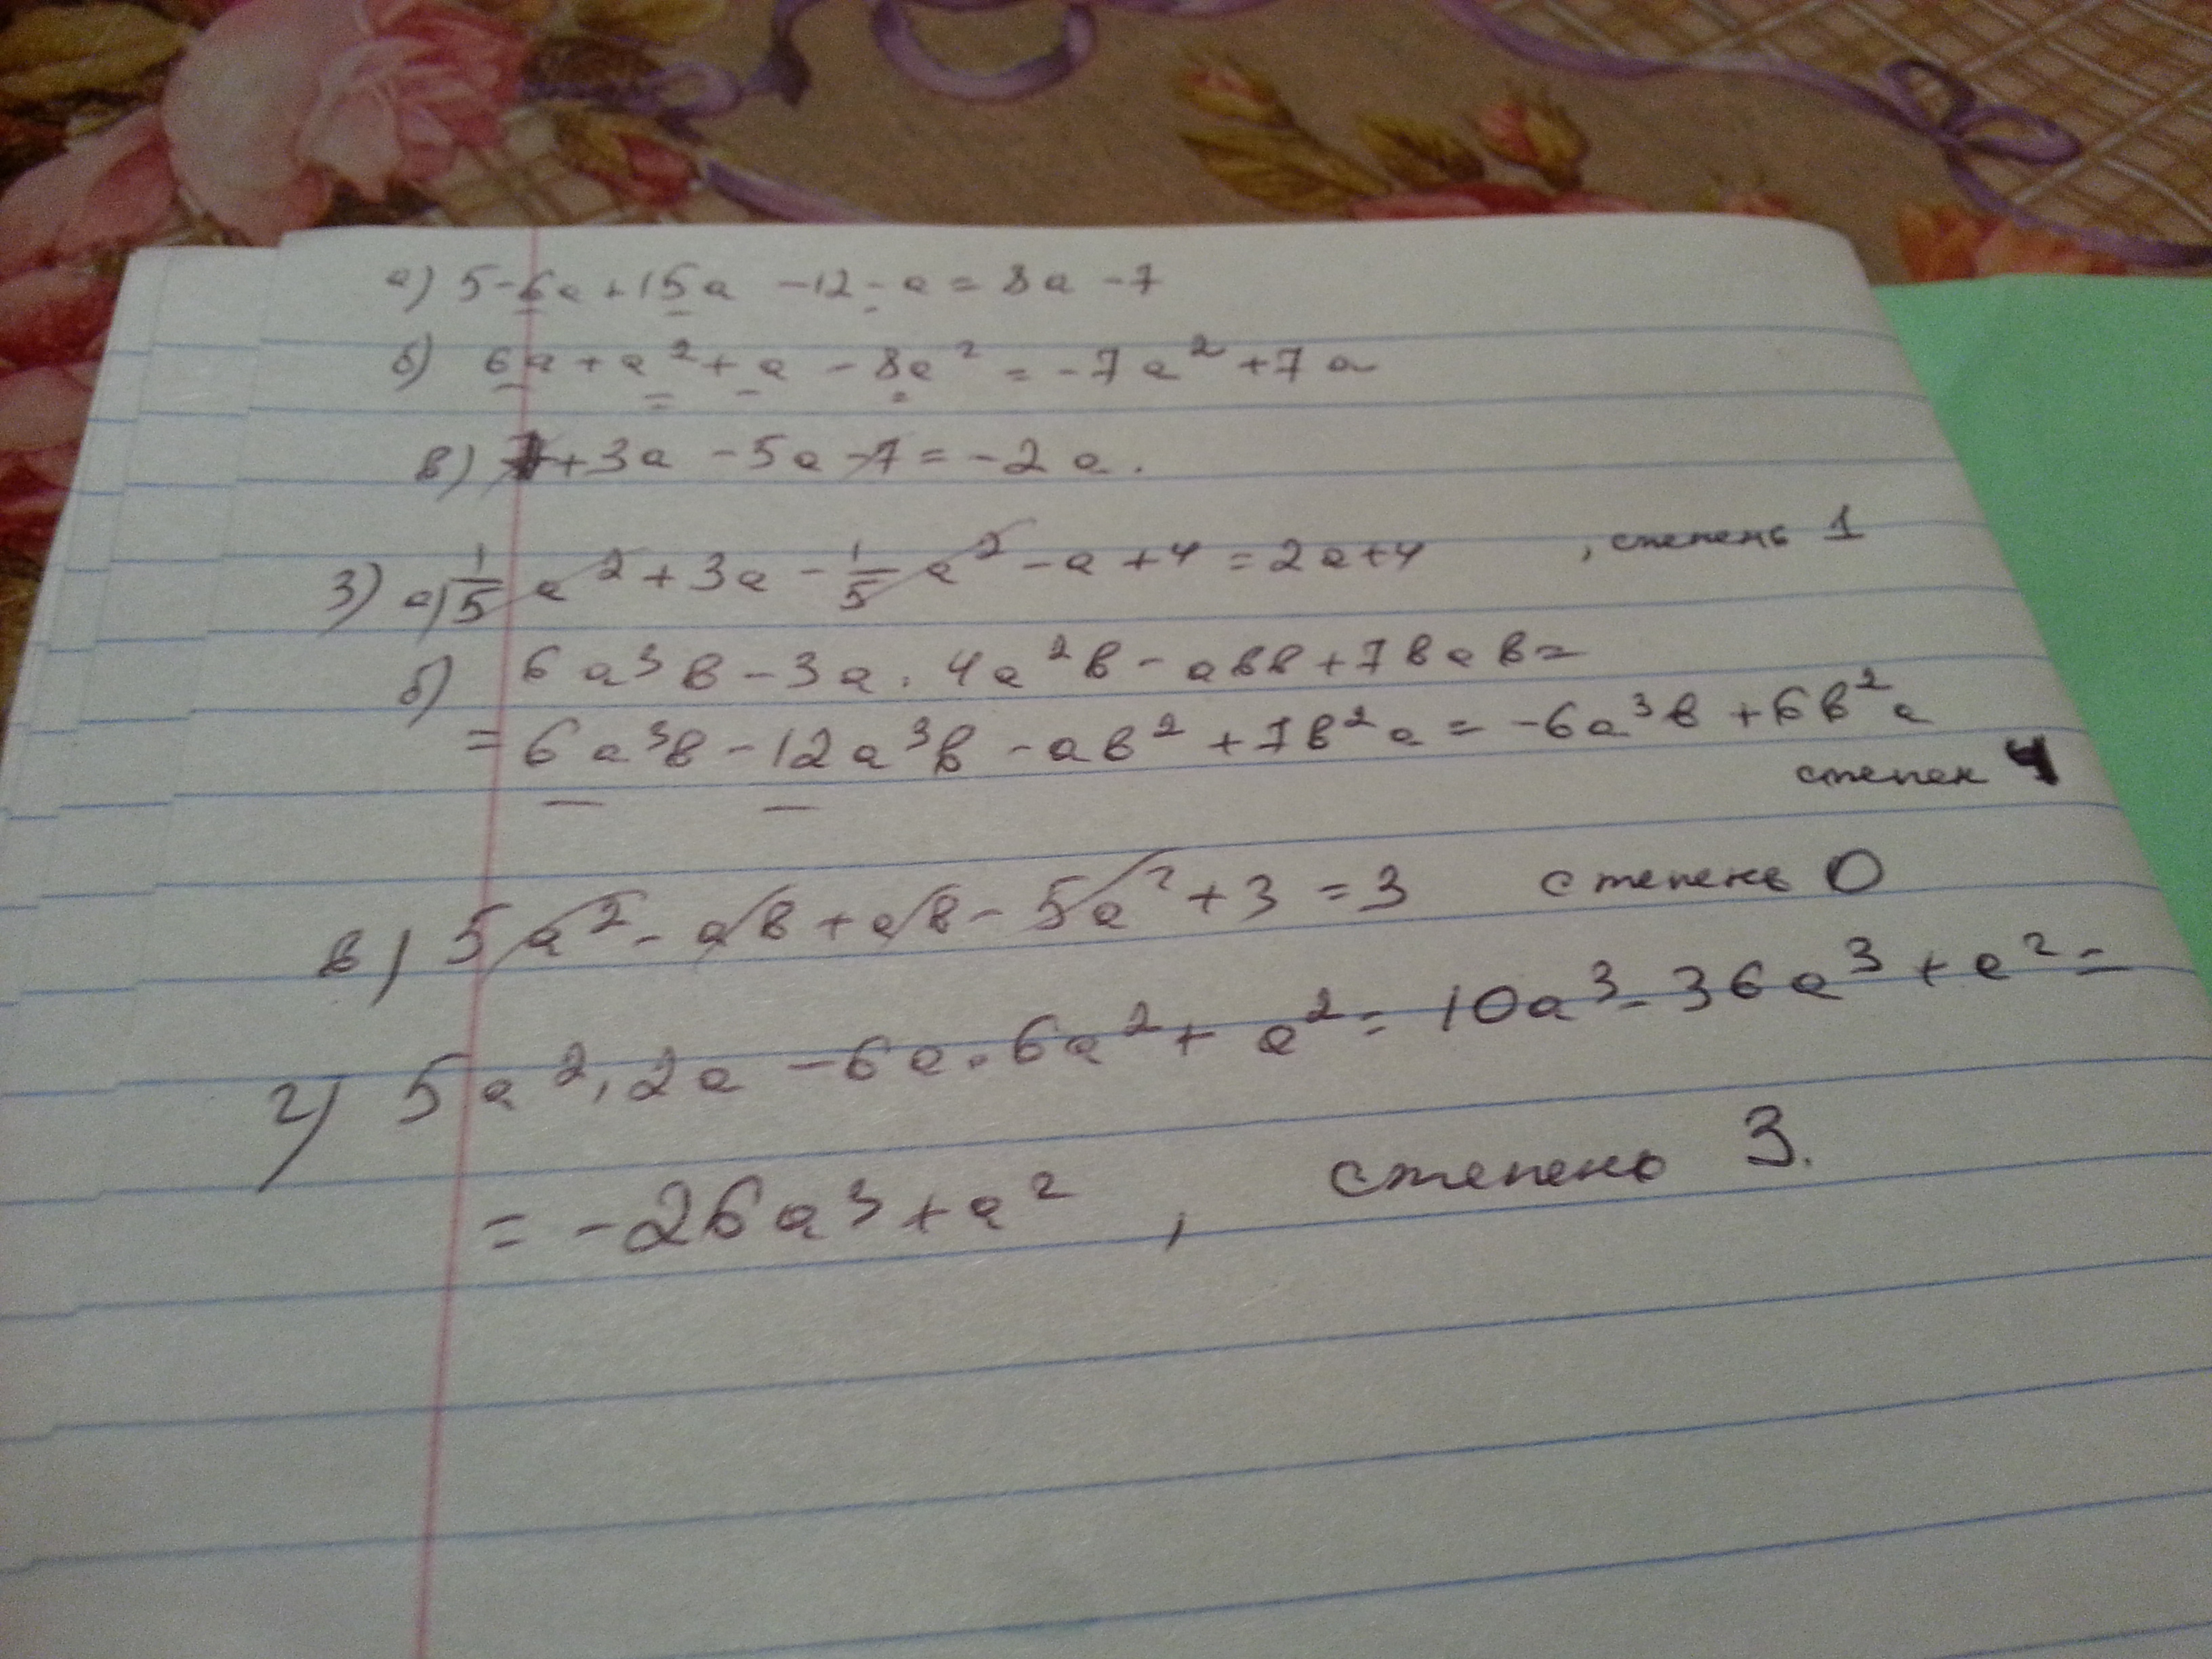 а) 5-6a+15a -12-a = 8a -7
б) 6a + a² + a - 8a² = -7a² +7a
в) 7+3a -5a-7= -2a.
3) а) 1/5 a² + 3a - 1/5 a² - a + 4 = 2a+4 , степень 1
б) 6a³в - 3a · 4a²в - aвв + 7вaв=
= 6a³в - 12a³в - aв² + 7в²a = -6a³в + 6в²a
степен 4
в) 5a² - aв + aв - 5a² + 3 = 3 степень 0
г) 5a² · 2a - 6a · 6a² + a² = 10a³ - 36a³ + a² =
= -26a³ + a² , степень 3.